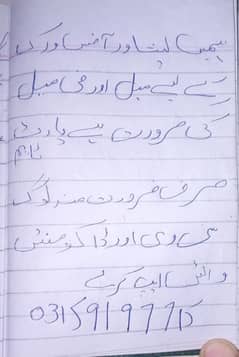 ہمیں پشاور آفس ورک
کے لیے میل اور فی میل
کی ضرورت ہے پارٹ
ٹائم
صرف ضرورت مند لوگ
سی وی اور ڈاکومنٹس
واٹس ایپ کرے